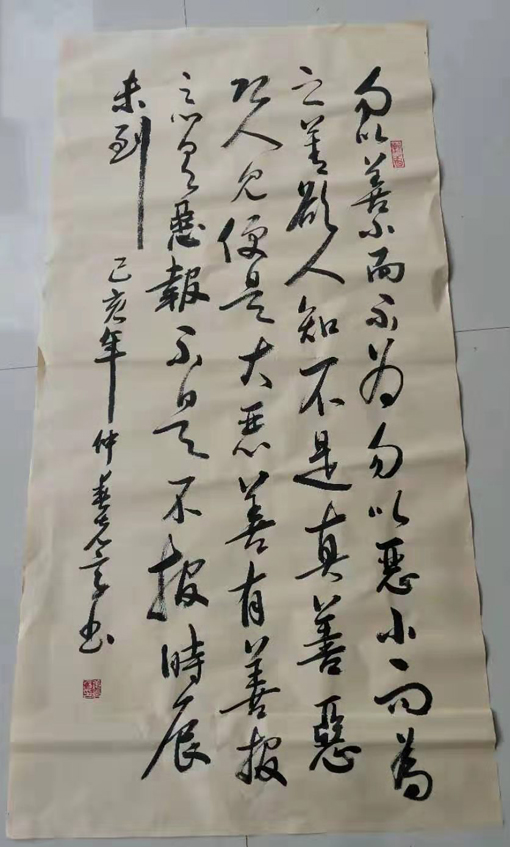 勿以善小而不为勿以惡小而為
之善欲人知不是真善惡
恐人见便是大恶善有善报
恶有惡報不是不报時辰
未到
己亥年仲春书